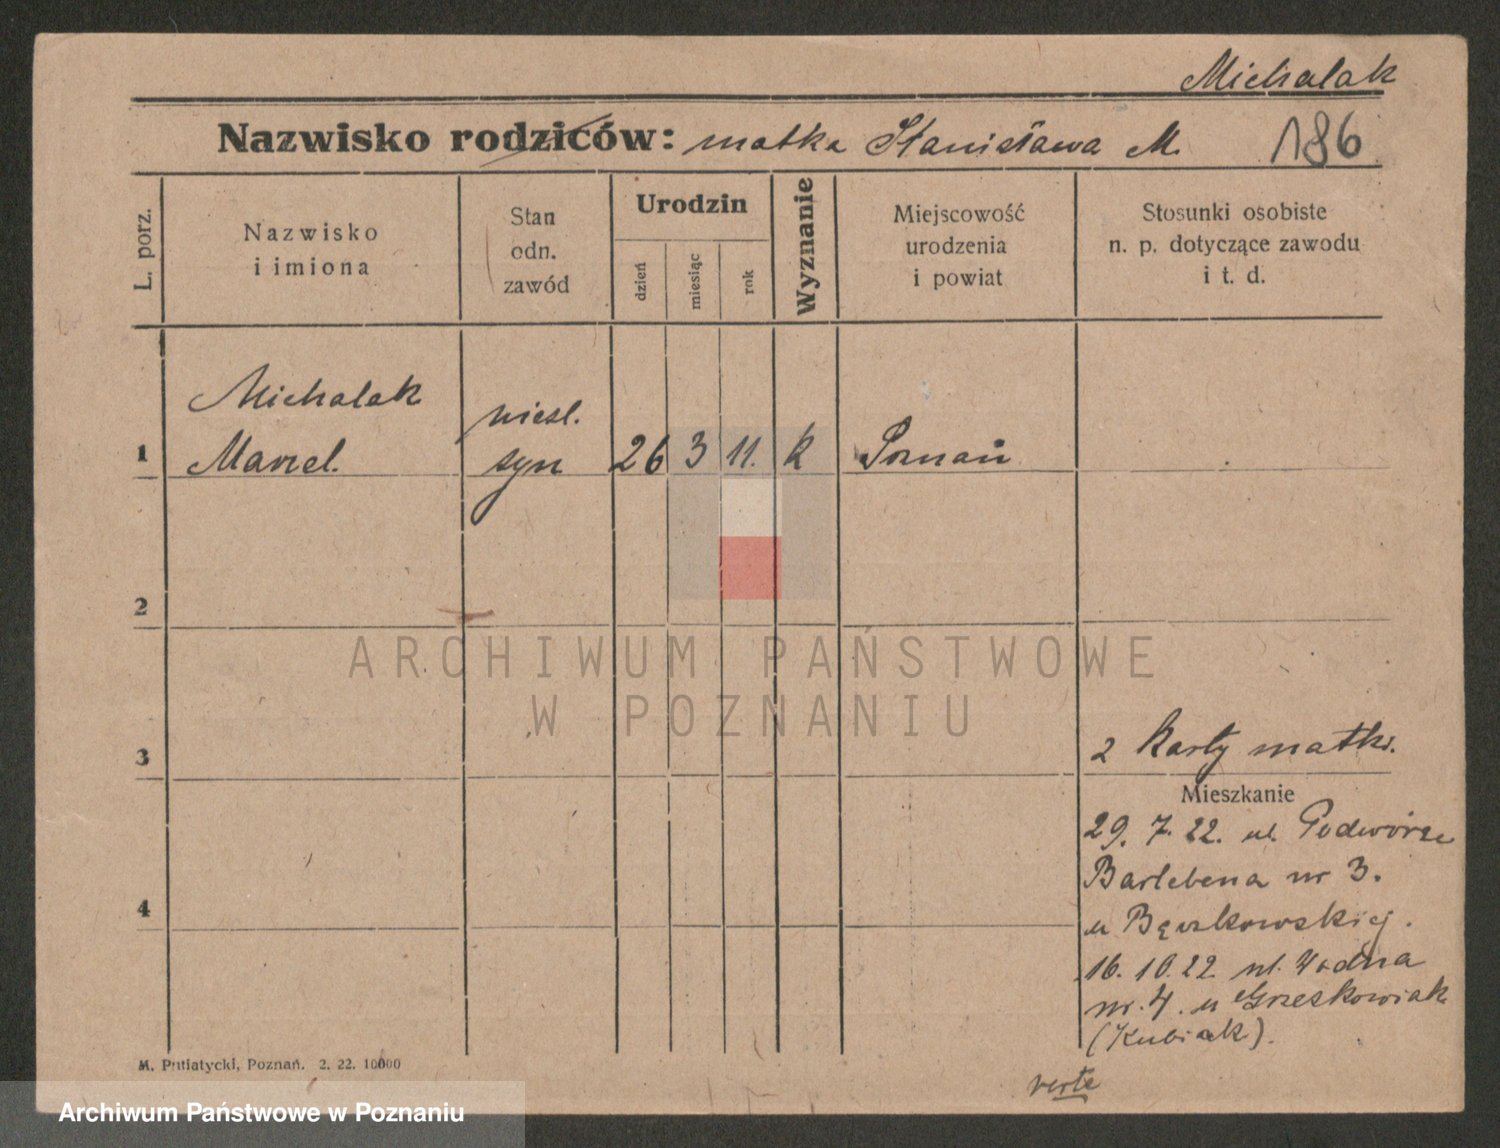 Michalak
Nazwisko rodziców: matka Stanisława M.
186
L. porz.
Nazwisko
i imiona
Stan
odn.
zawód
Urodzin
dzień
miesiąc
rok
Wyznanie
Miejscowość
urodzenia
i powiat
Stosunki osobiste
n. p. dotyczące zawodu
i t. d.
1
Michalak
Marcel.
niesl.
syn
26 3 11. k Poznań
2
ARCHIWUM PAŃSTWOWE
W POZNANIU
3
2 Karty matki.
Mieszkanie
29. 7. 22. ul. Podwórze
Barlebena nr 3.
u
4
16. 10. 22 ul. Wodna
nr. 4. u Grześkowiak
(Kubiak).
M. Putiatycki, Poznań. 2. 22. 10000
verte
Archiwum Państwowe w Poznaniu